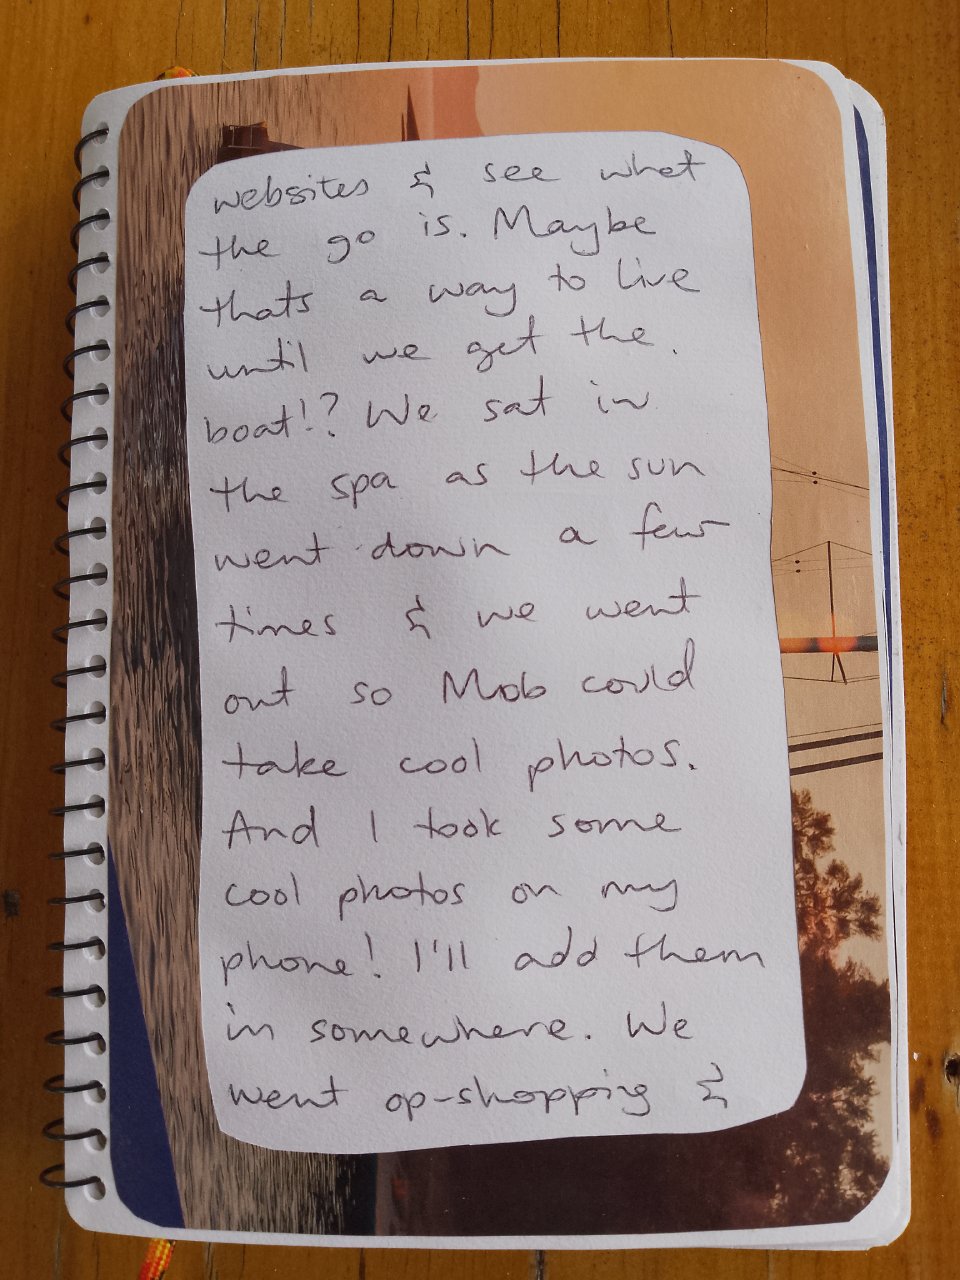 websites & see what
the go is. Maybe
thats a way to live
until we get the
boat!? We sat in
the spa as the sun
went down a few
times & we went
out so Mob could
take cool photos.
And I took some
cool photos on my
phone! I'll add them
in somewhere. We
went op-shopping &